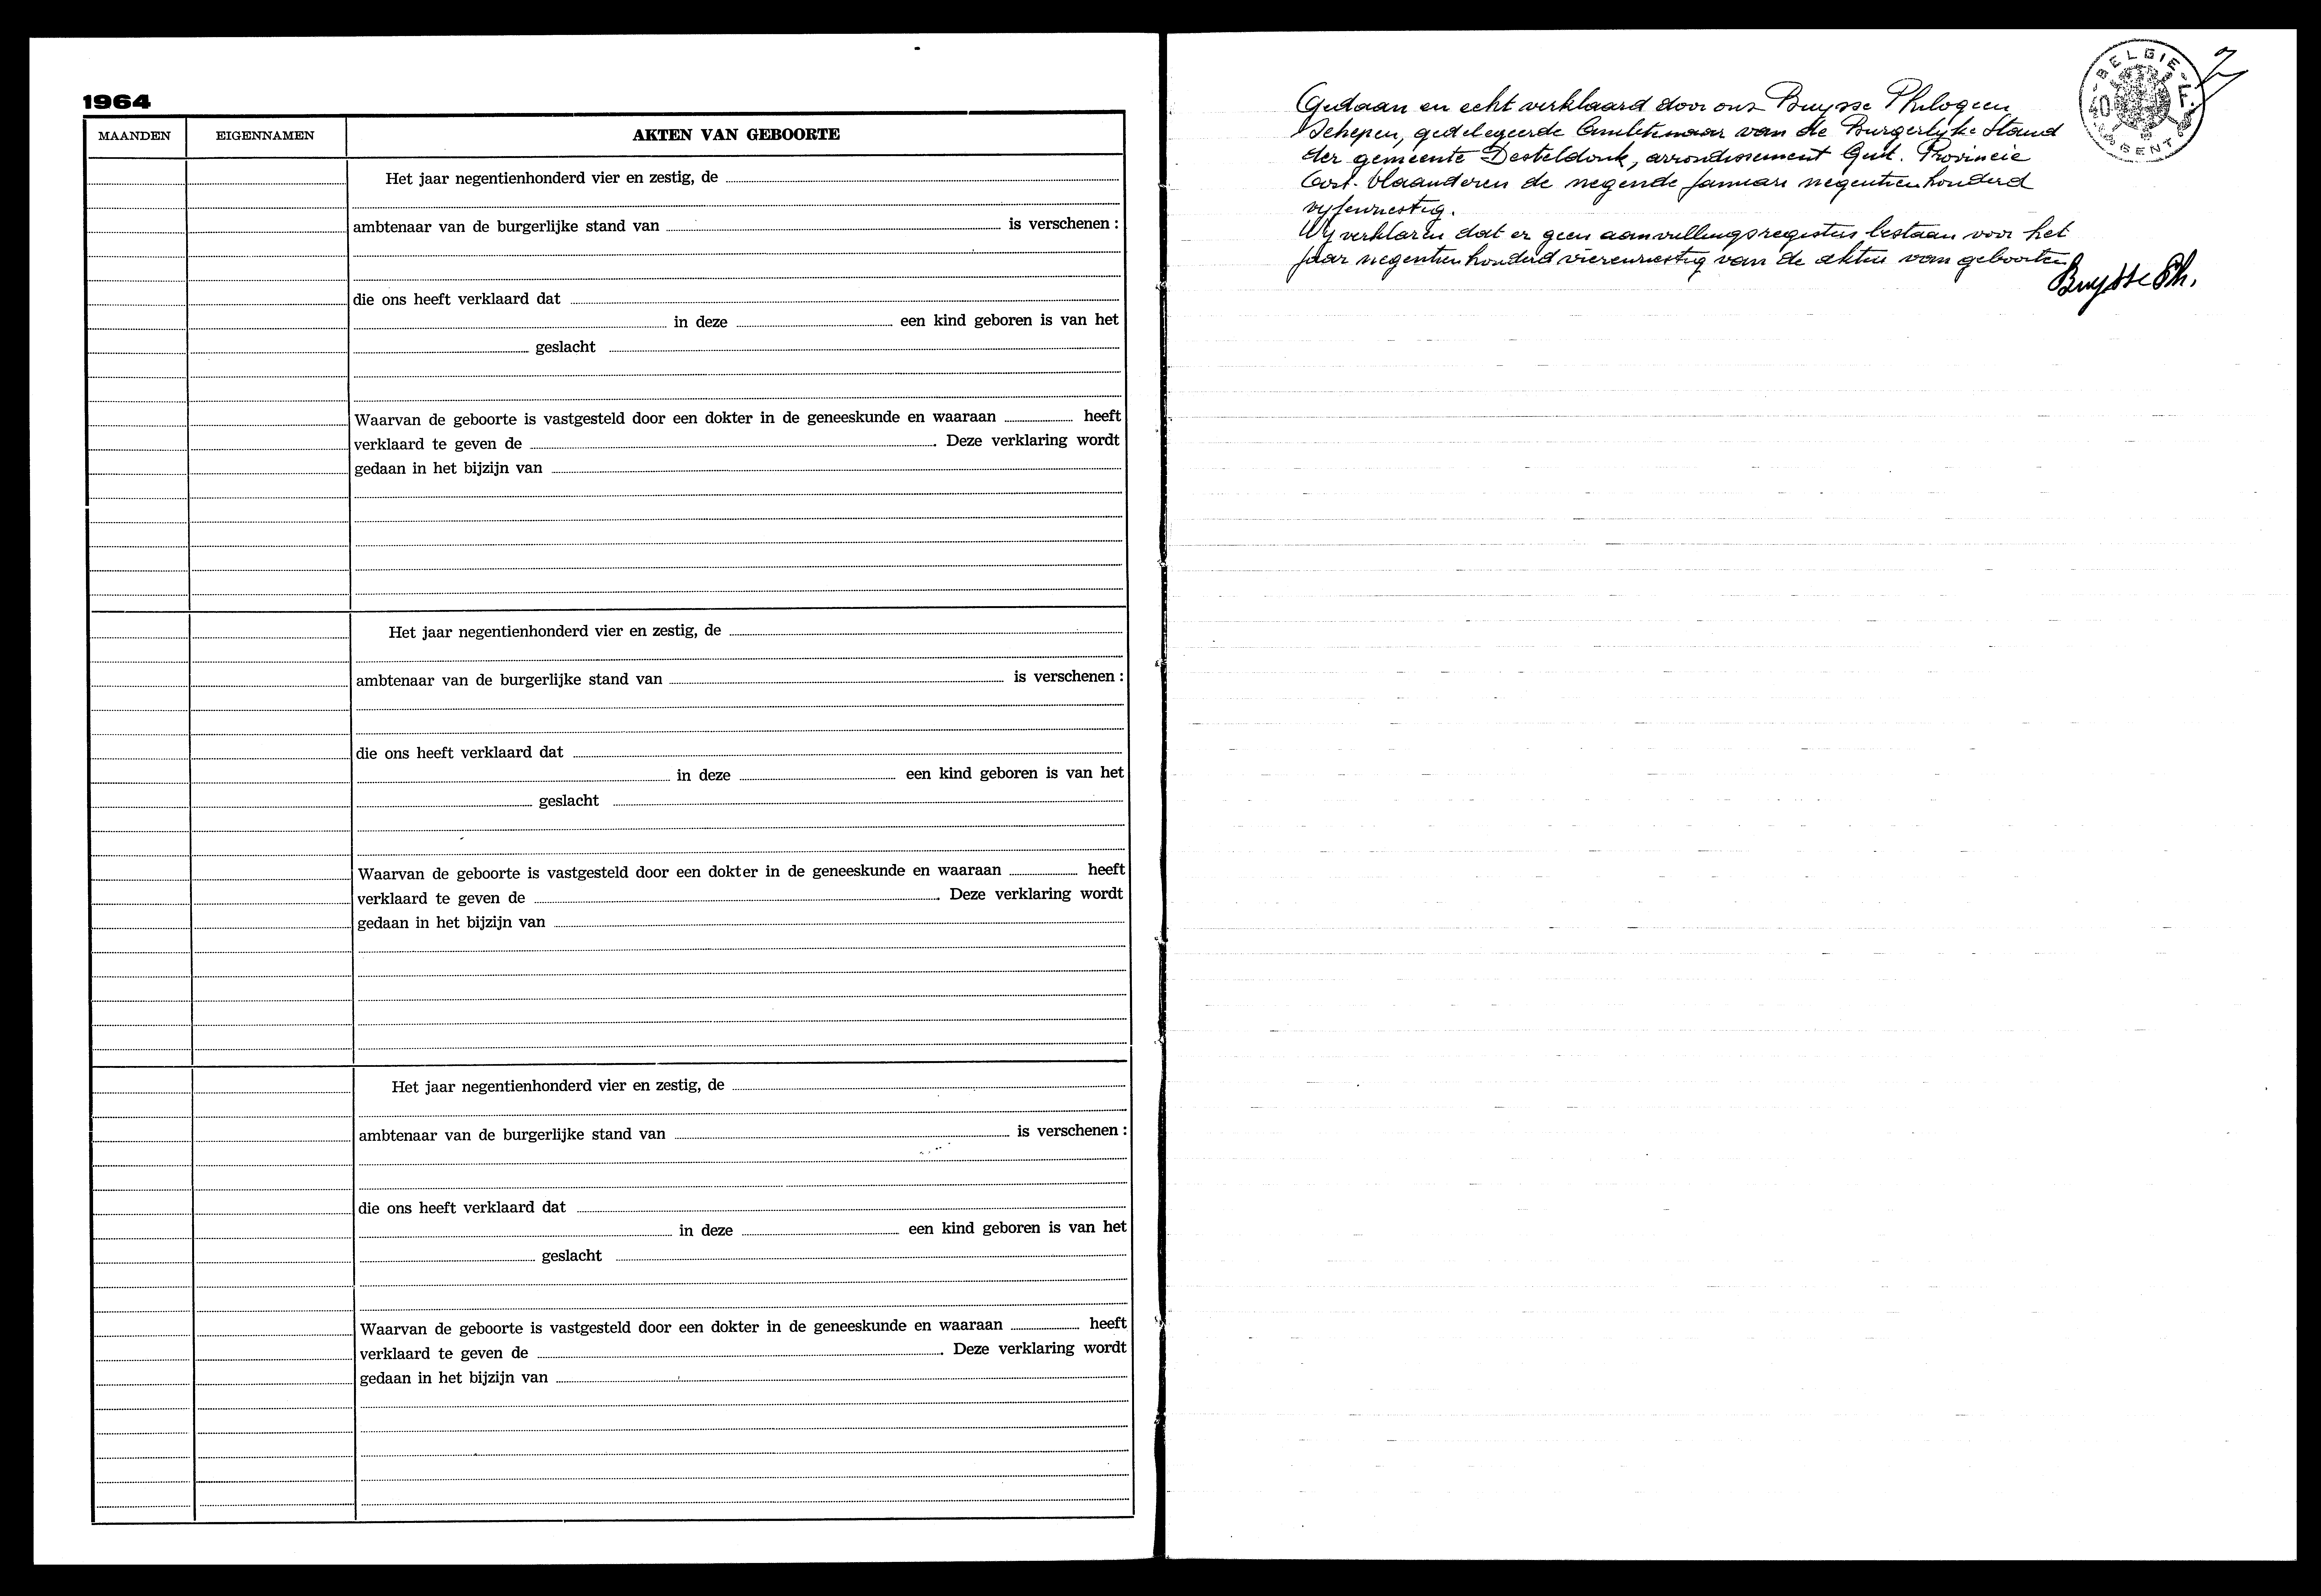 1964
MAANDEN EIGENNAMEN AKTEN VAN GEBOORTE
Het jaar negentienhonderd vier en zestig, de
ambtenaar van de burgerlijke stand van is verschenen :
die ons heeft verklaard dat
in deze een kind geboren is van het
geslacht
Waarvan de geboorte is vastgesteld door een dokter in de geneeskunde en waaraan heeft
verklaard te geven de . Deze verklaring wordt
gedaan in het bijzijn van
Het jaar negentienhonderd vier en zestig, de
ambtenaar van de burgerlijke stand van is verschenen :
die ons heeft verklaard dat
in deze een kind geboren is van het
geslacht
Waarvan de geboorte is vastgesteld door een dokter in de geneeskunde en waaraan heeft
verklaard te geven de . Deze verklaring wordt
gedaan in het bijzijn van
Het jaar negentienhonderd vier en zestig, de
ambtenaar van de burgerlijke stand van is verschenen :
die ons heeft verklaard dat
in deze een kind geboren is van het
geslacht
Waarvan de geboorte is vastgesteld door een dokter in de geneeskunde en waaraan heeft
verklaard te geven de . Deze verklaring wordt
gedaan in het bijzijn van
BELGIE
40 F.
GENT
Gedaan en echt verklaard door ons Buysse Philogeen
Schepen, gedelegeerde Ambtenaar van de Burgerlyke Stand
der gemeente Desteldonk, arrondissement Gent. Provincie
Oost-Vlaanderen de negende Januari negentienhonderd
vyfenzestig.
Wy verklaren dat er geen aanvullingsregisters bestaan voor het
jaar negentienhonderd vierenzestig van de akten van geboorten
Buysse Ph.